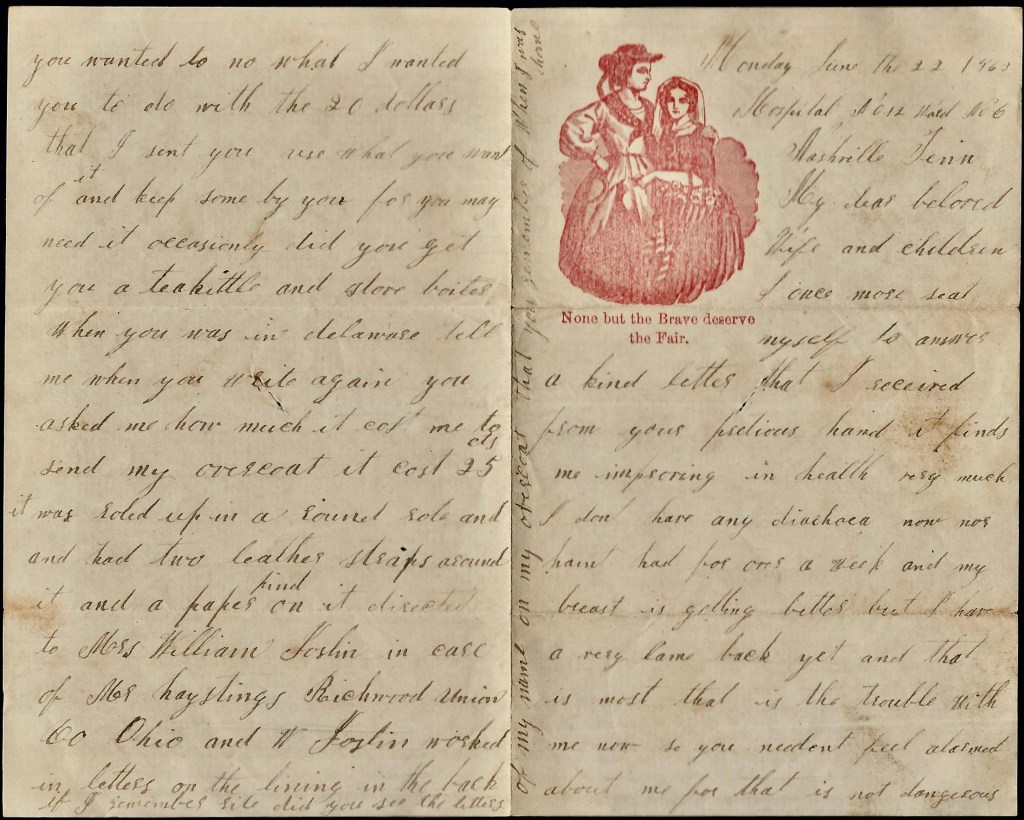 Monday June the 22 1863
Hospital No 12 Ward No 6
Nashville Tenn
My dear beloved
Wife and children
I once more seat
None but the Brave deserve
the Fair.
myself to answer
a kind letter that I received
from your pretious hand it finds
me improving in health very much
I dont have any diarhoea now nor
haint had for over a week and my
breast is getting better but I have
a very lame back yet and that
is most that is the trouble with
me now so you needent feel alarmed
about me for that is not dangerous
you wanted to no what I wanted
you to do with the 20 dollars
that I sent you use what you want
of it and keep some by you for you may
need it occasionly did you get
you a teakittle and stove boiler
When you was in delaware tell
me when you write again you
asked me how much it cost me to
send my overcoat it cost 25 cts
it was roled up in a round role and
and had two leather straps around
it and a paper pind on it directed
to Mrs William Joslin in care
of Mr haystings Richwood Union
Co Ohio and W Joslin worked
in letters on the lining in the back
if I remember rite did you see the letters
of my name on my overcoat that you remember of When I was
home